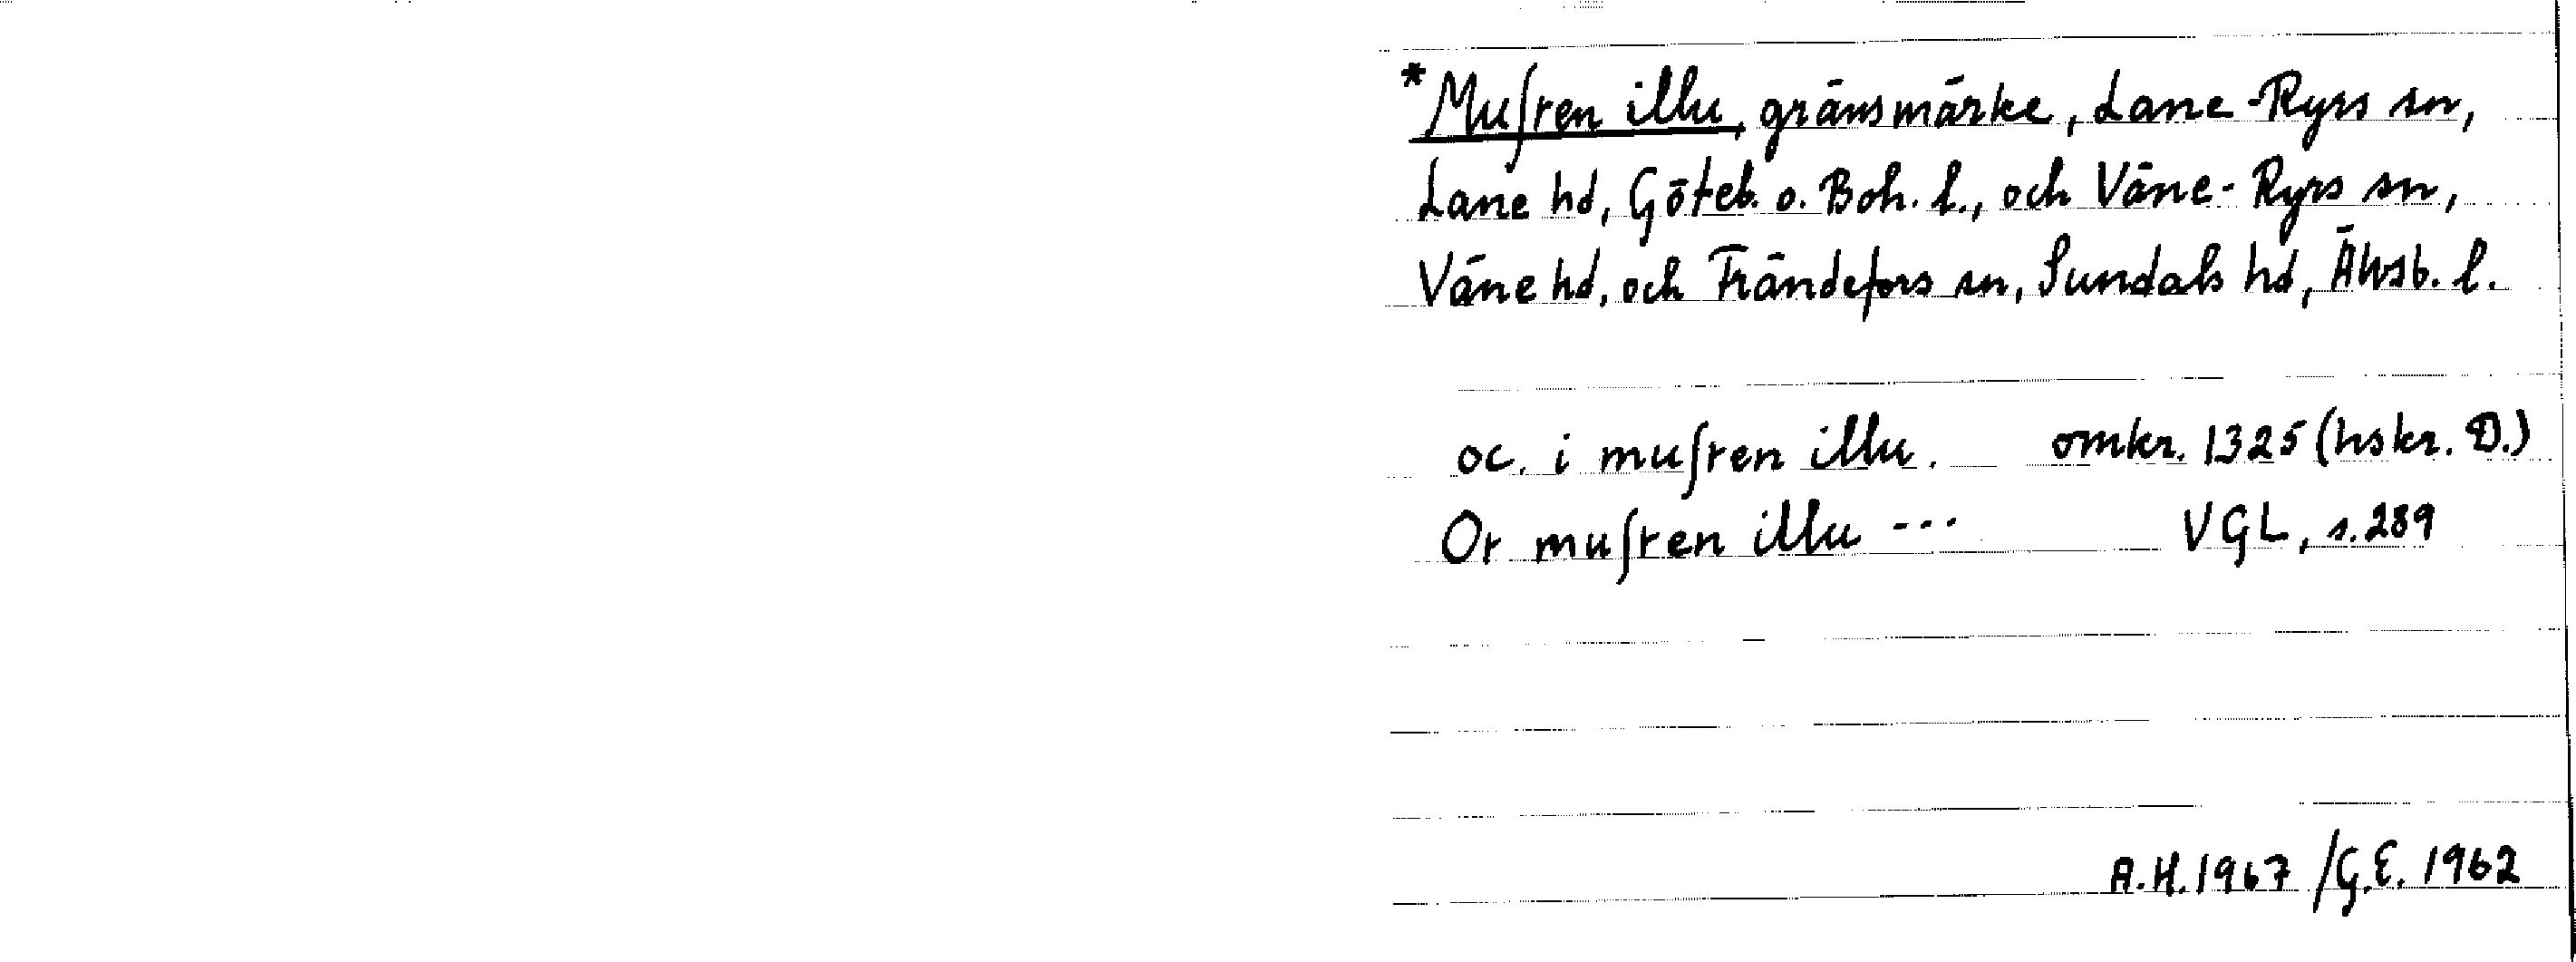 *Muſren illu, gränsmärke, Lane-Ryrs sn,
Lane hd, Göteb. o. Boh. l., och Väne-Ryrs sn,
Väne hd, och Frändefors sn, Sundals hd, Älvsb. l.
oc. i muſren illu. omkr. 1325 (hskr. D.)
Or muſren illu --- VGL, s. 289
A.H. 1967 / G.E. 1962